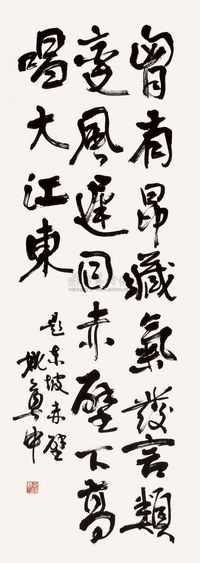 胷有昂藏氣發言類
變風遲回赤壁下高
唱大江東
題東坡赤壁
姚奠中